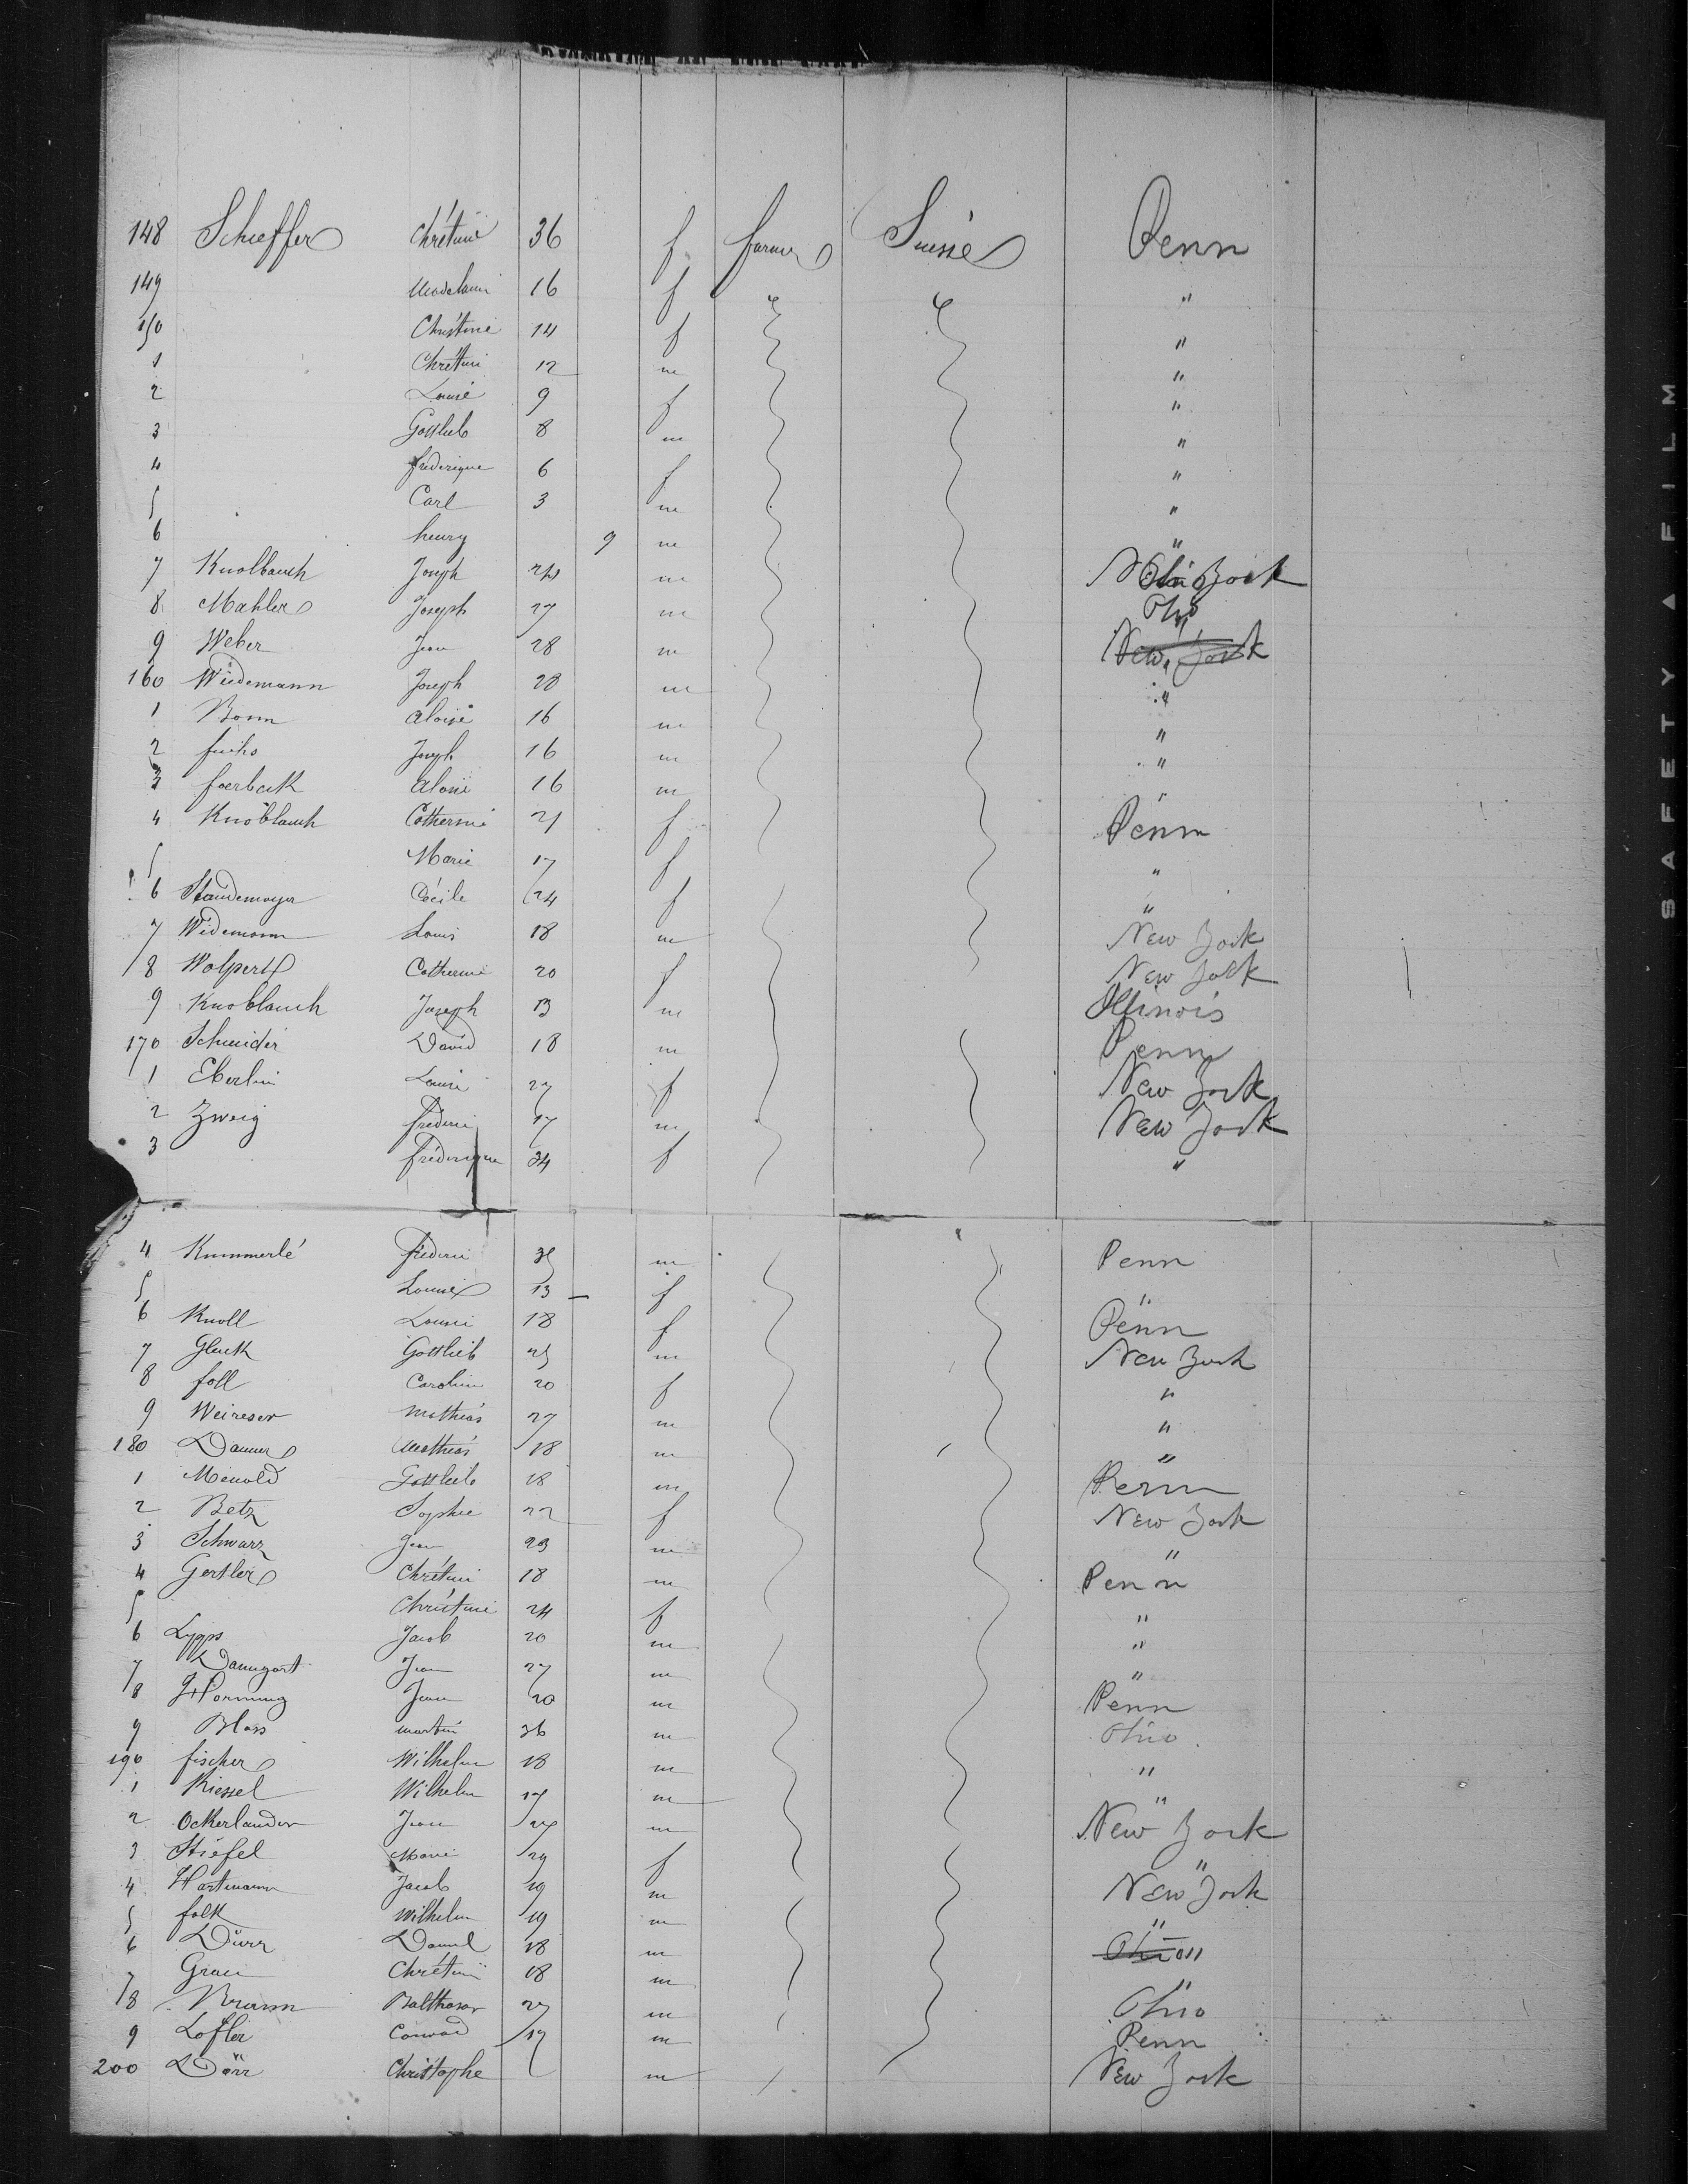 148 Schieffer Chrétine 36 f farmer Suisse Penn
149 Madelaine 16 f "
150 Christine 14 f "
1 Chrétien 12 m "
2 Louise 9 f "
3 Gottlieb 8 m "
4 frederique 6 f "
5 Carl 3 m "
6 henry 9 m "
7 Knolbauch Joseph 24 m
8 Mahler Joseph 27 m Ohio
9 Weber Jean 28 m New York
160 Wiedemann Joseph 28 m "
1 Bonn Aloise 16 m "
2 fuchs Joseph 16 m "
3 foerback Aloise 16 m "
4 Knoblauch Catherine 21 f Penn
5 Marie 17 f "
6 Staudemayer Cécile 24 f "
7 Widemann Louis 18 m New York
8 Wolpert Catherine 20 f New York
9 Knoblauch Joseph 13 m Illinois
170 Schneider David 18 m Penn
1 Eberlin Louise 27 f New York
2 Zweig frederic 17 m New York
3 frederique 34 f "
4 Kummerlé frederic 35 m Penn
5 Louise 13 f "
6 Knoll Louise 18 f Penn
7 Gluck Gottlieb 25 m New York
8 foll Caroline 20 f "
9 Weireser Mathias 27 m "
180 Danner Mathias 18 m "
1 Menold Gottlieb 18 m Penn
2 Betz Sophie 22 f New York
3 Schwarz Jean 23 m "
4 Gertler Chrétien 18 m Penn
5 Christine 24 f "
6 Lypps Jacob 20 m "
7 Daumgart Jean 27 m "
8 Hornung Jean 20 m Penn
9 Blass martin 36 m Ohio
190 fischer Wilhelm 18 m "
1 Riessel Wilhelm 17 m "
2 Ockerlander Jean 27 m New York
3 Stiefel Marie 29 f "
4 Hartmann Jacob 19 m New York
5 falk Wilhelm 19 m "
6 Dürr Daniel 18 m Ohio "
7 Grau Chrétien 18 m "
8 Braun Balthasar 27 m Ohio
9 Lofler Conrad 17 m Penn
200 Dörr Christophe m New York
SAFETY ▲ FILM